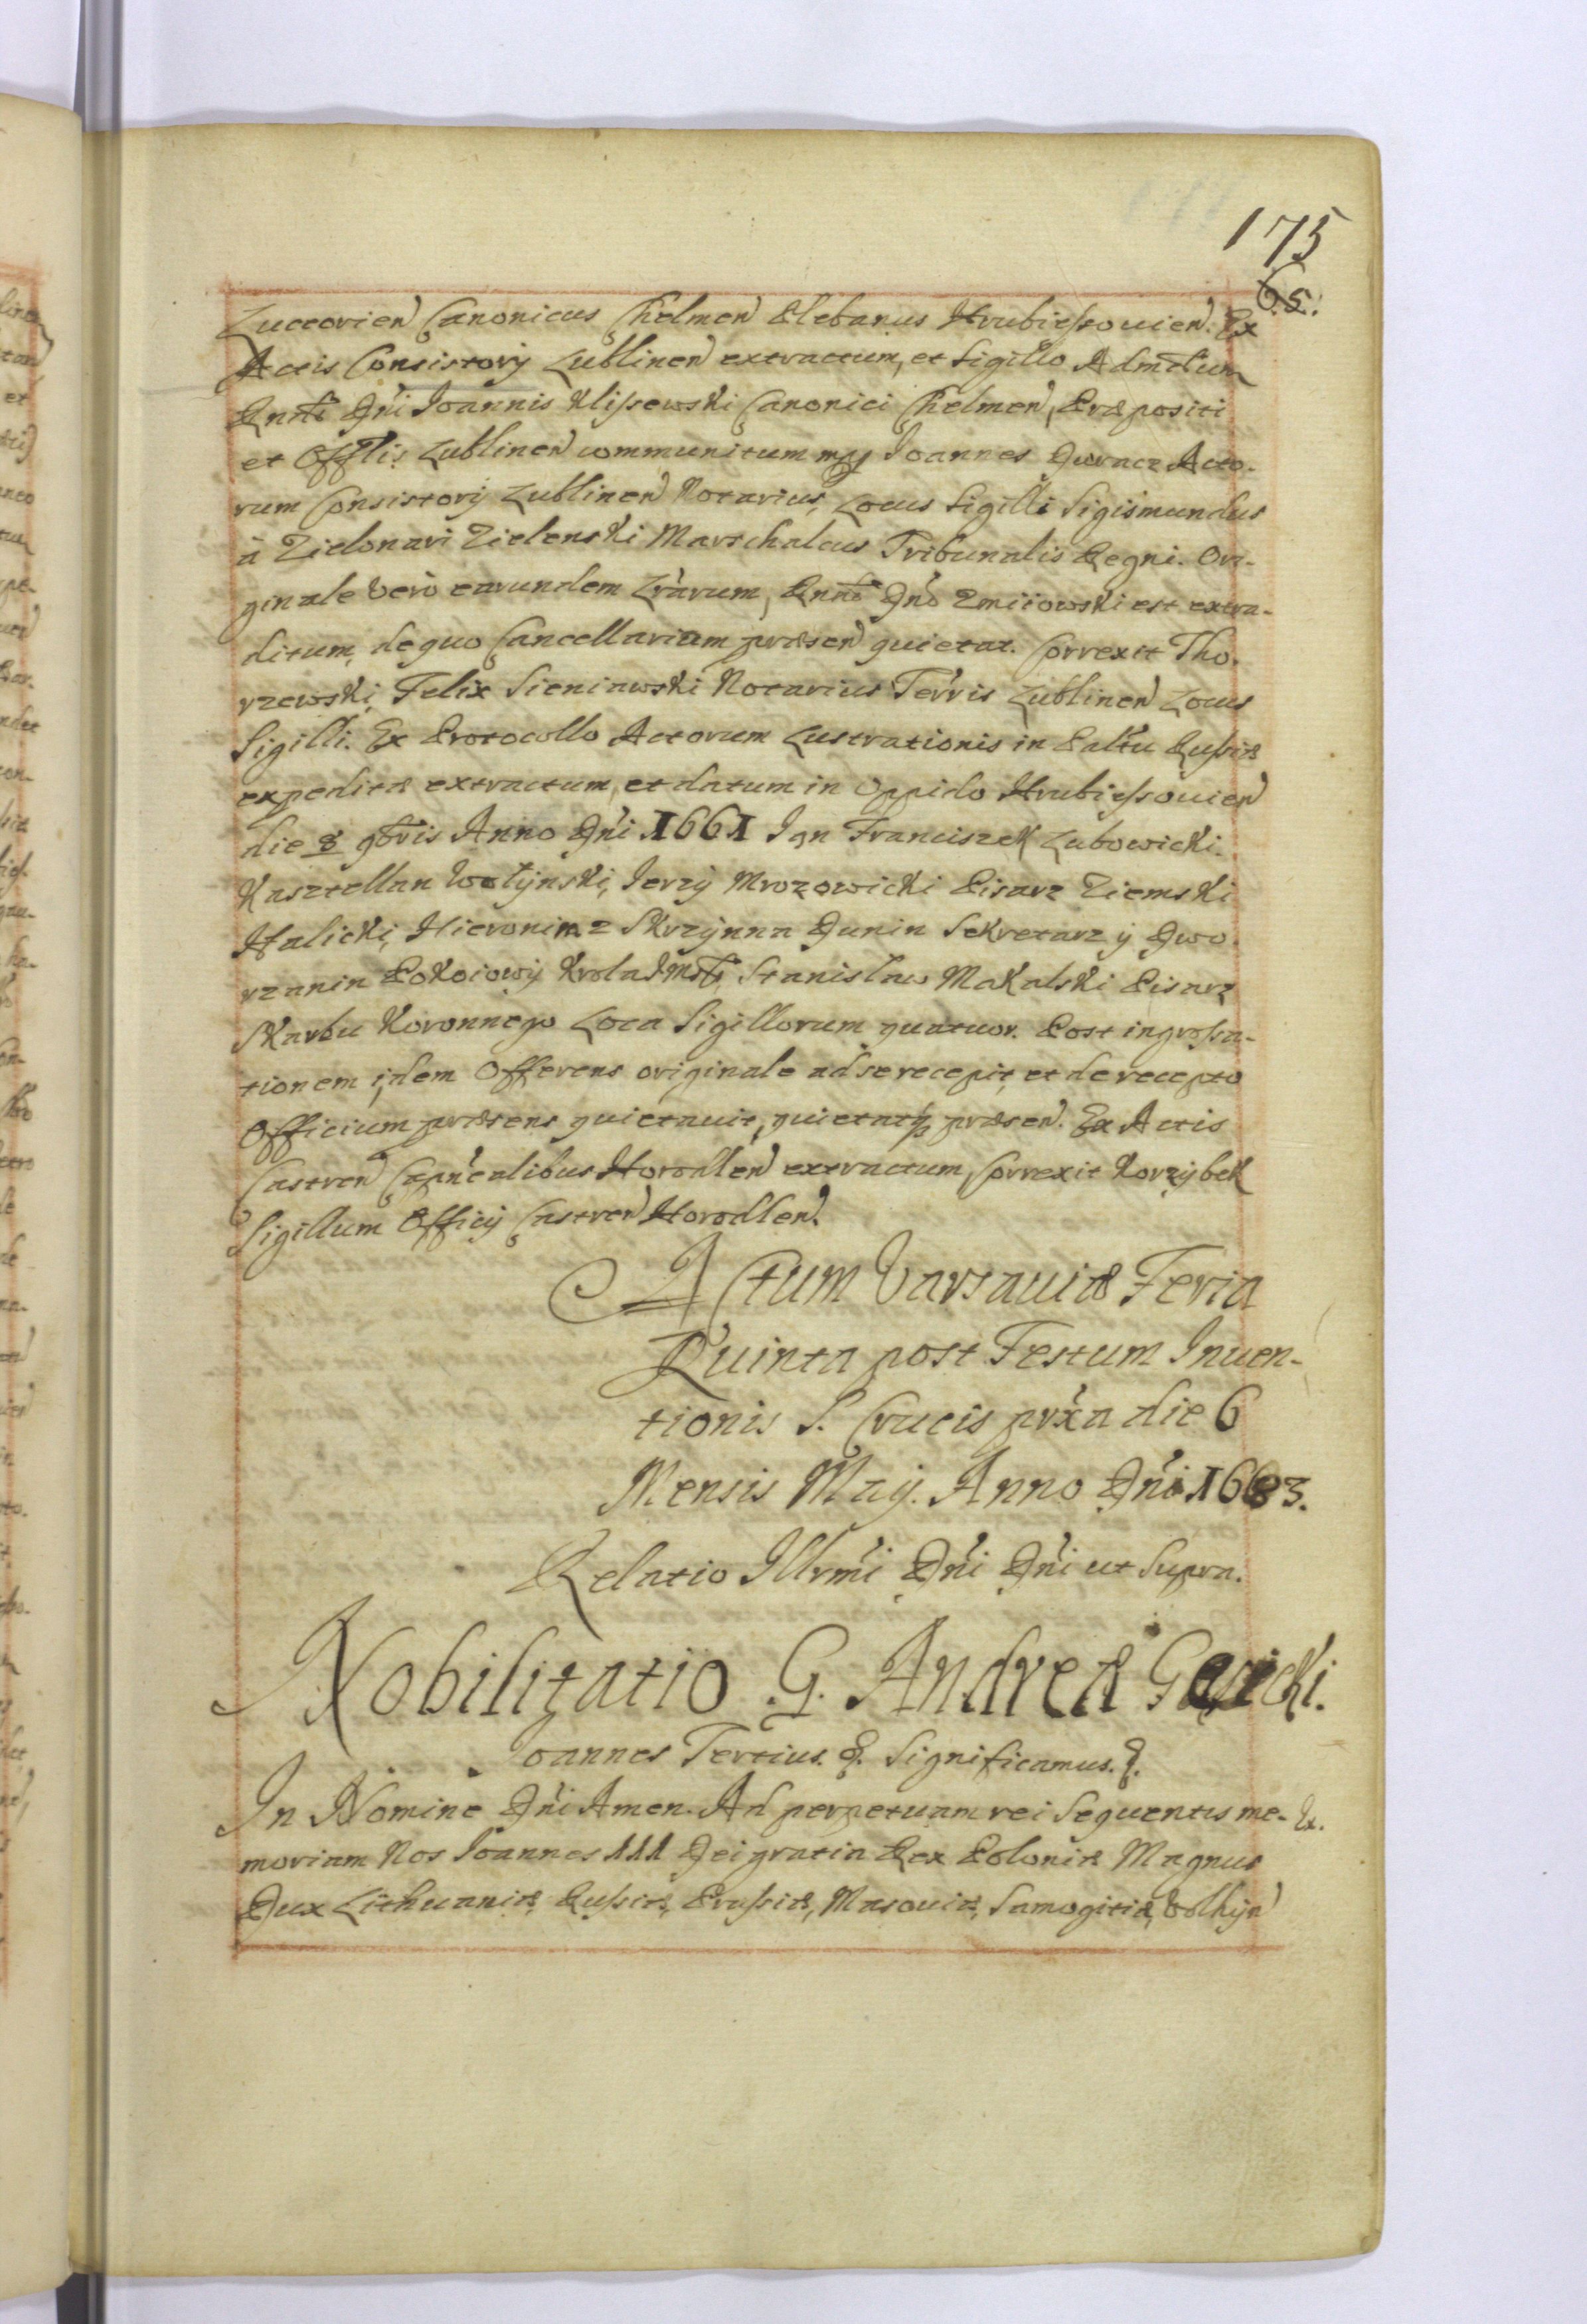 175
65.
Luceorien Canonicus Chelmen Plebanus Hrubiessouien. Ex
Actis Consistorij Lublinen extractum, et Sigillo Admodum
Rndi Dni Joannis Klissewski Canonici Chelmen, Præpositi
et Offlis Lublinen communitum mpp Joannes Gwracz Acto-
rum Consistorij Lublinen Notarius, Locus Sigilli Sigismundus
à Zielonari Zielenski Marschalcus Tribunalis Regni. Ori-
ginale verò earundem Lrarum, Rndo Dno Zmiiowski est extra-
ditum, de quo Cancellariam præsen quietat. Correxit Tho-
rzewski, Felix Sieniawski Notarius Terris Lublinen Locus
Sigilli. Ex Protocollo Actorum Lustrationis in Paltu Russiæ
expeditæ extractum, et datum in Oppido Hrubiessouien
die 8 9bris Anno Dni 1661 Jgn Franciszek Lubowicki
Kasztellan Wołynski, Jerzÿ Mrozowicki Pisarz Ziemski
Halicki, Hieronim z Skrzÿnna Dunin Sekretarz ÿ Dwo-
rzanin Pokoiowÿ Krola Jmsci, Stanisław Makalski Pisarz
Skarbu Koronnego Loca Sigillorum quatuor. Post ingrossa-
tionem, idem Offerens originale ad se recepit, et de recepto
Officium præsens quietauit, quietatq præsen. Ex Actis
Castren Capnealibus Horodlen extractum, Correxit Korzÿbek
Sigillum Officij Castren Horodlen.
Actum Varsauiæ Feria
Quinta post Festum Inuen-
tionis S. Crucis prxa die 6
Mensis Maij. Anno Dni 1683.
Relatio Illrmi Dni Dni ut Supra.
Nobilitatio G. Andreæ
Joannes Tertius. &. Significamus. &.
In Nomine Dni Amen. Ad perpetuam rei Sequentis me- Ex.
moriam Nos Joannes III Dei gratia Rex Poloniæ Magnus
Dux Lithuaniæ, Russiæ, Prussiæ, Masouiæ, Samogitiæ, Volhÿn